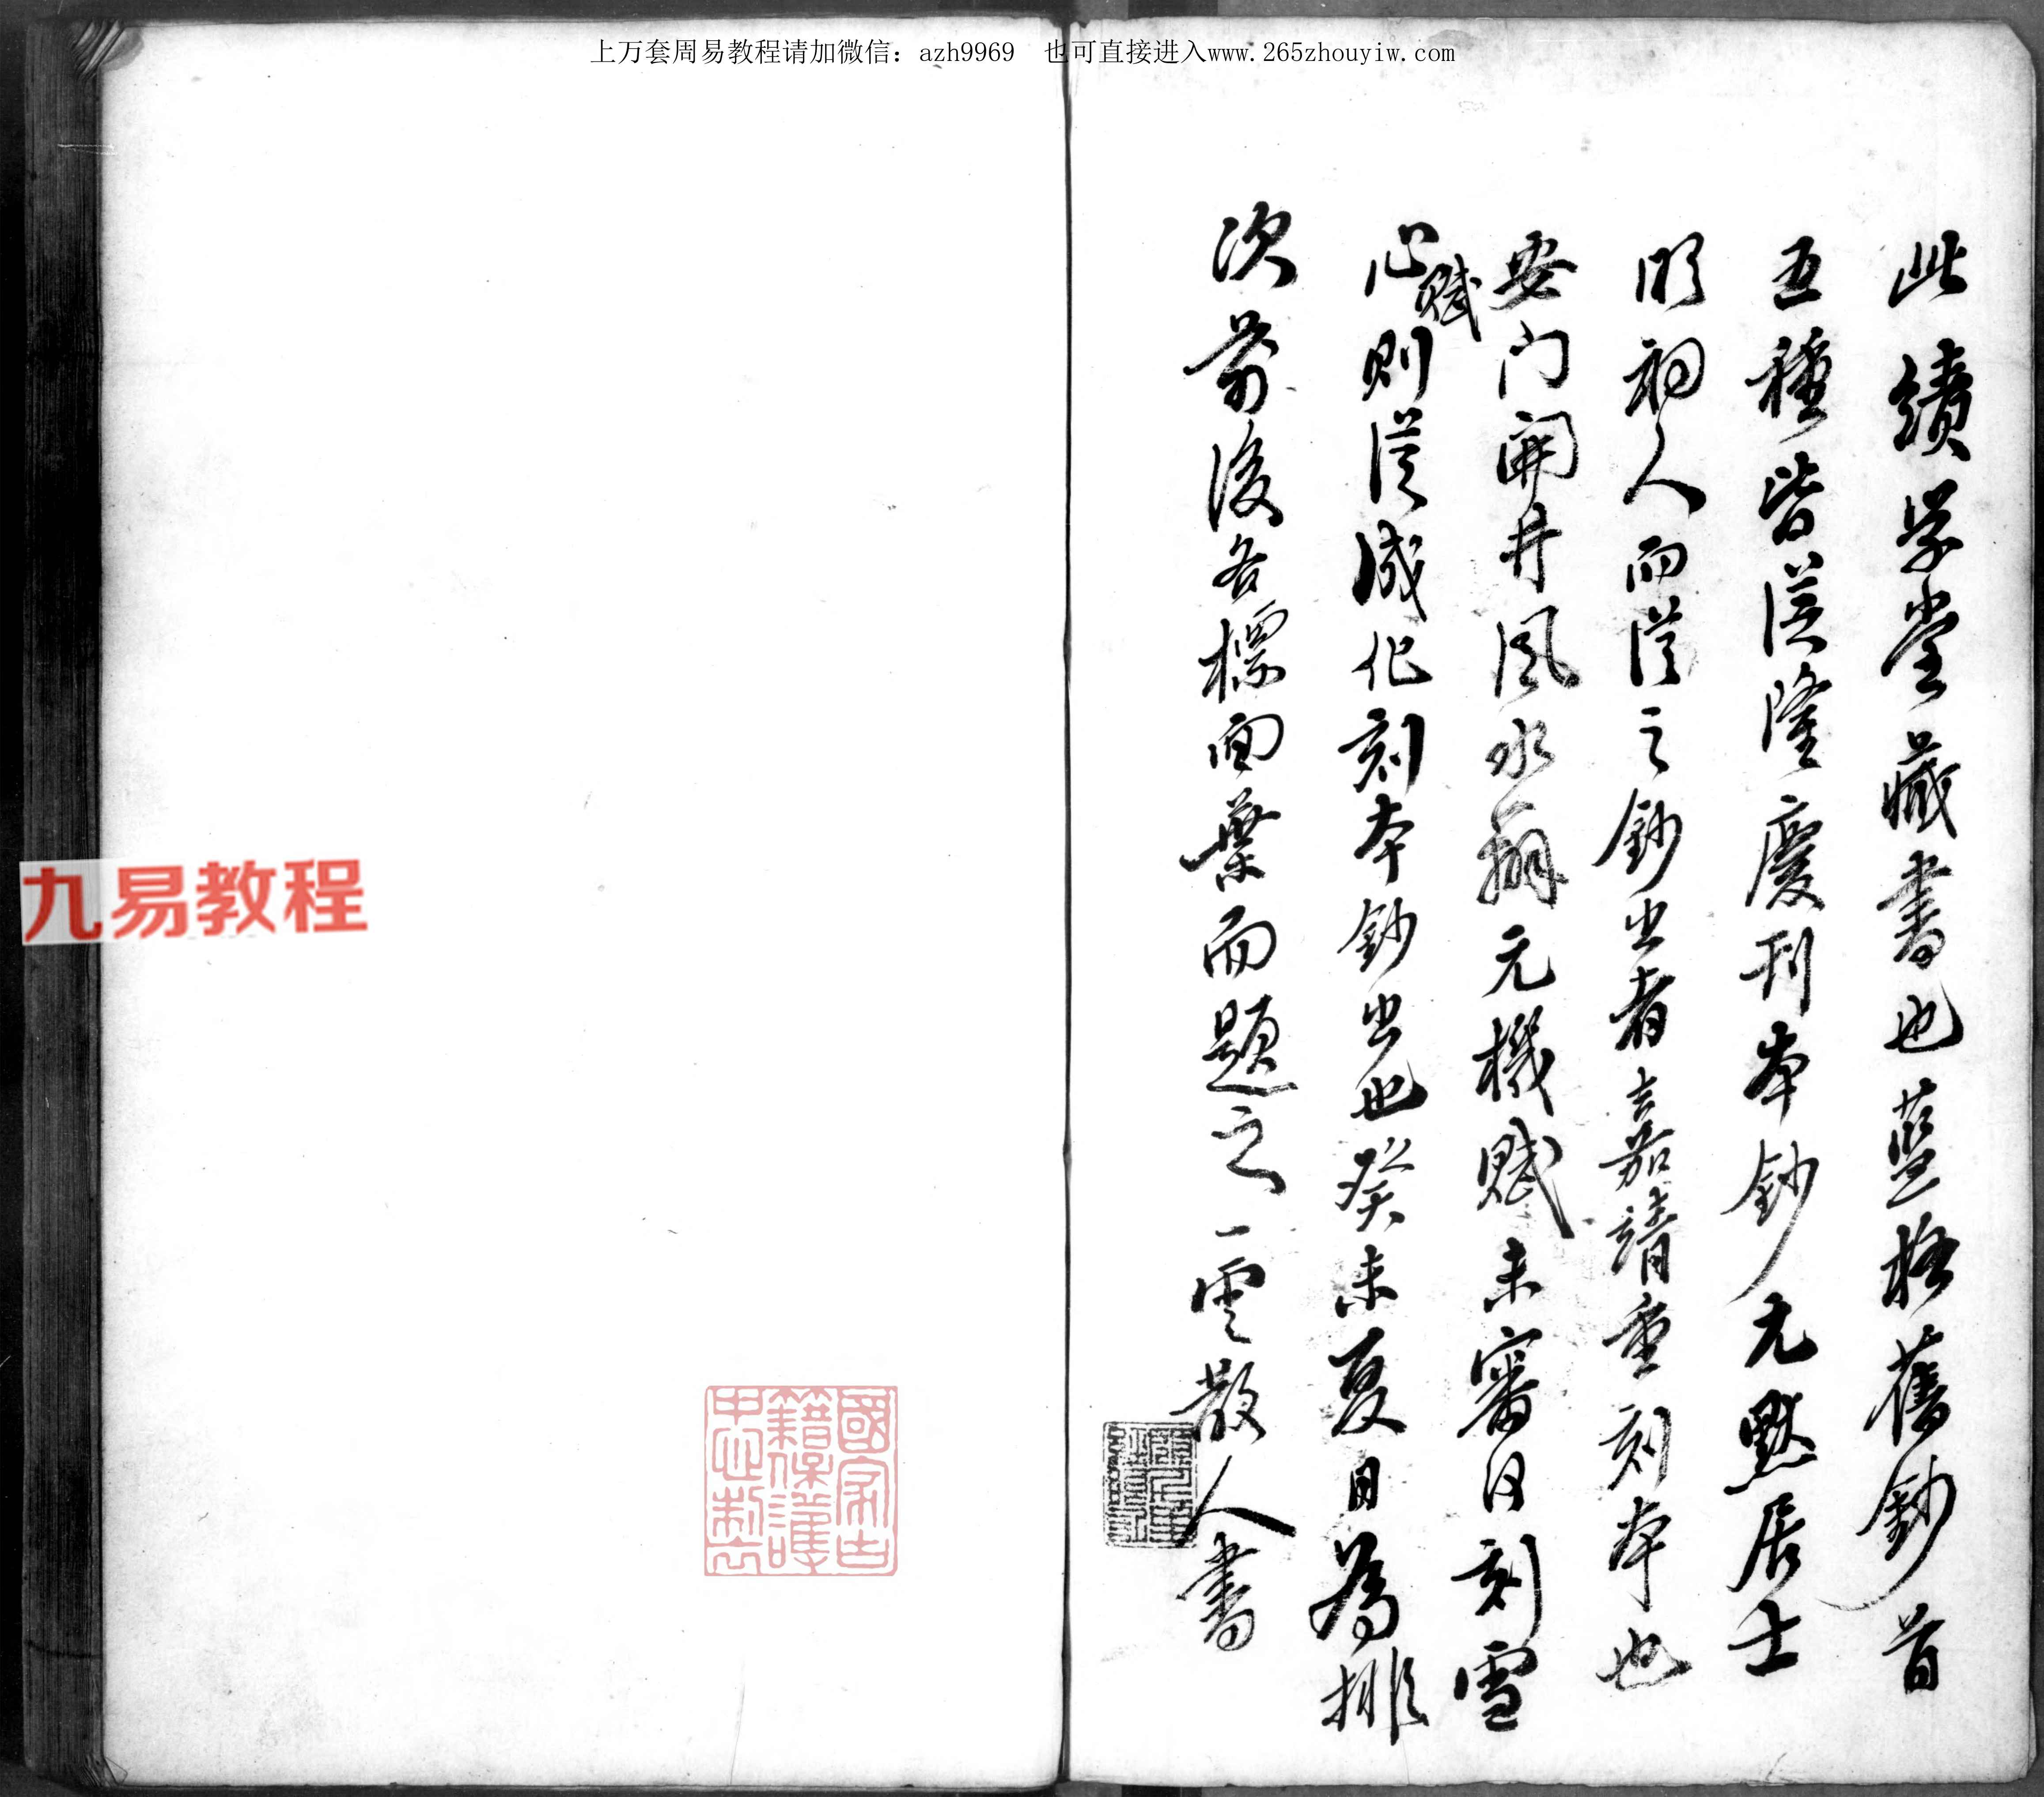 上万套周易教程请加微信：azh9969 也可直接进入www.265zhouyiw.com
此績学堂藏書也藍格舊鈔首
五種皆從隆慶刊本鈔尤默居士
明初人而從之鈔出者嘉靖重刻本也
安门開井風水元機賦未審何刻雪
心賦則從成化刻本鈔出也癸未夏日為排
次前後各標面葉而題之一雲散人書
九易教程
國家古
籍保護
中心制